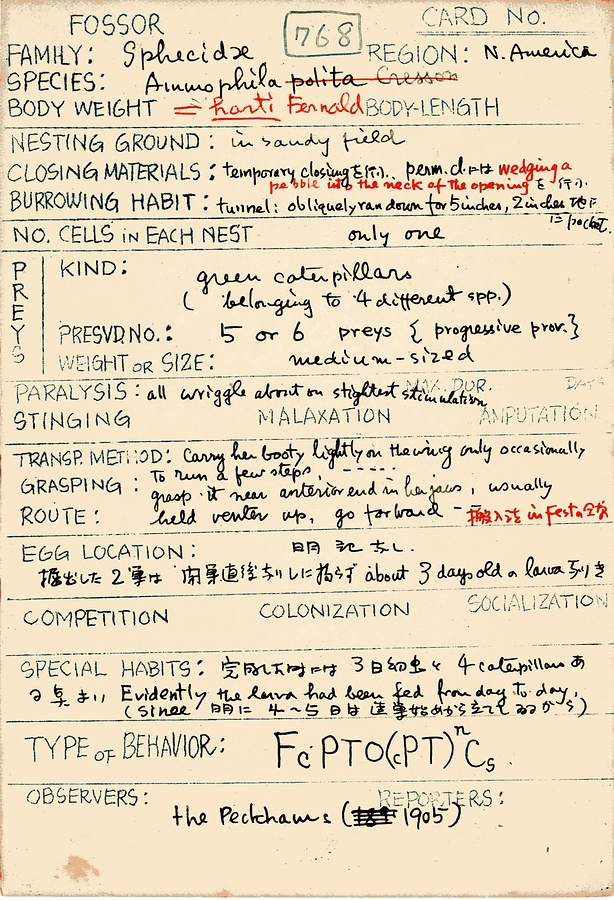 FOSSOR 768 CARD NO.
FAMILY: Sphecidæ REGION: N. America
SPECIES: Ammophila polita Cresson
BODY WEIGHT = harti Fernald BODY-LENGTH
NESTING GROUND: in sandy field
CLOSING MATERIALS: temporary closingを行い. perm. cl.には wedging a
pebble into the neck of the opening を行う.
BURROWING HABIT: tunnel: obliquely ran down for 5 inches, 2 inches 地下
に pocket.
NO. CELLS IN EACH NEST only one
PREYS
KIND: green caterpillars
(belonging to 4 different spp.)
PRESVD. NO.: 5 or 6 preys { progressive prov. }
WEIGHT OR SIZE: medium-sized
PARALYSIS: all wriggle about on slightest stimulation MAX. DUR. DAYS
STINGING MALAXATION AMPUTATION
TRANSP. METHOD: Carry her booty lightly on the wing only occasionally
to run a few steps. -----
GRASPING: grasp it near anterior end in her jaws, usually
ROUTE: held venter up, go forward -- 搬入法 in festa
EGG LOCATION: 明記なし.
掘出した2巣は 閉巣直後なりしに拘らず about 3 days old の larva なりき
COMPETITION COLONIZATION SOCIALIZATION
SPECIAL HABITS: 3日幼虫と 4 caterpillars あ
Evidently the larva had been fed from day to day.
(since 明に 4~5日は 造巣始めから立てゐるから)
TYPE OF BEHAVIOR: Fc PTO(cPT)ⁿCs.
OBSERVERS: REPORTERS:
the Peckhams ( 1905)